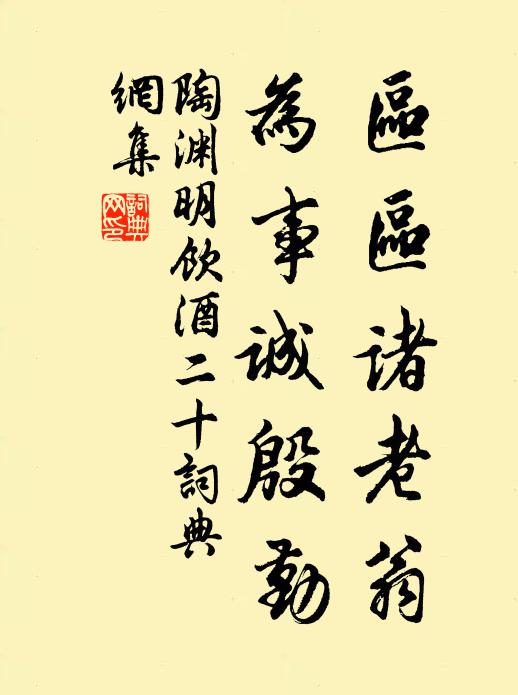 區區諸老翁
為事誠殷勤
陶渊明飲酒二十詞典
網集
詞典
网印